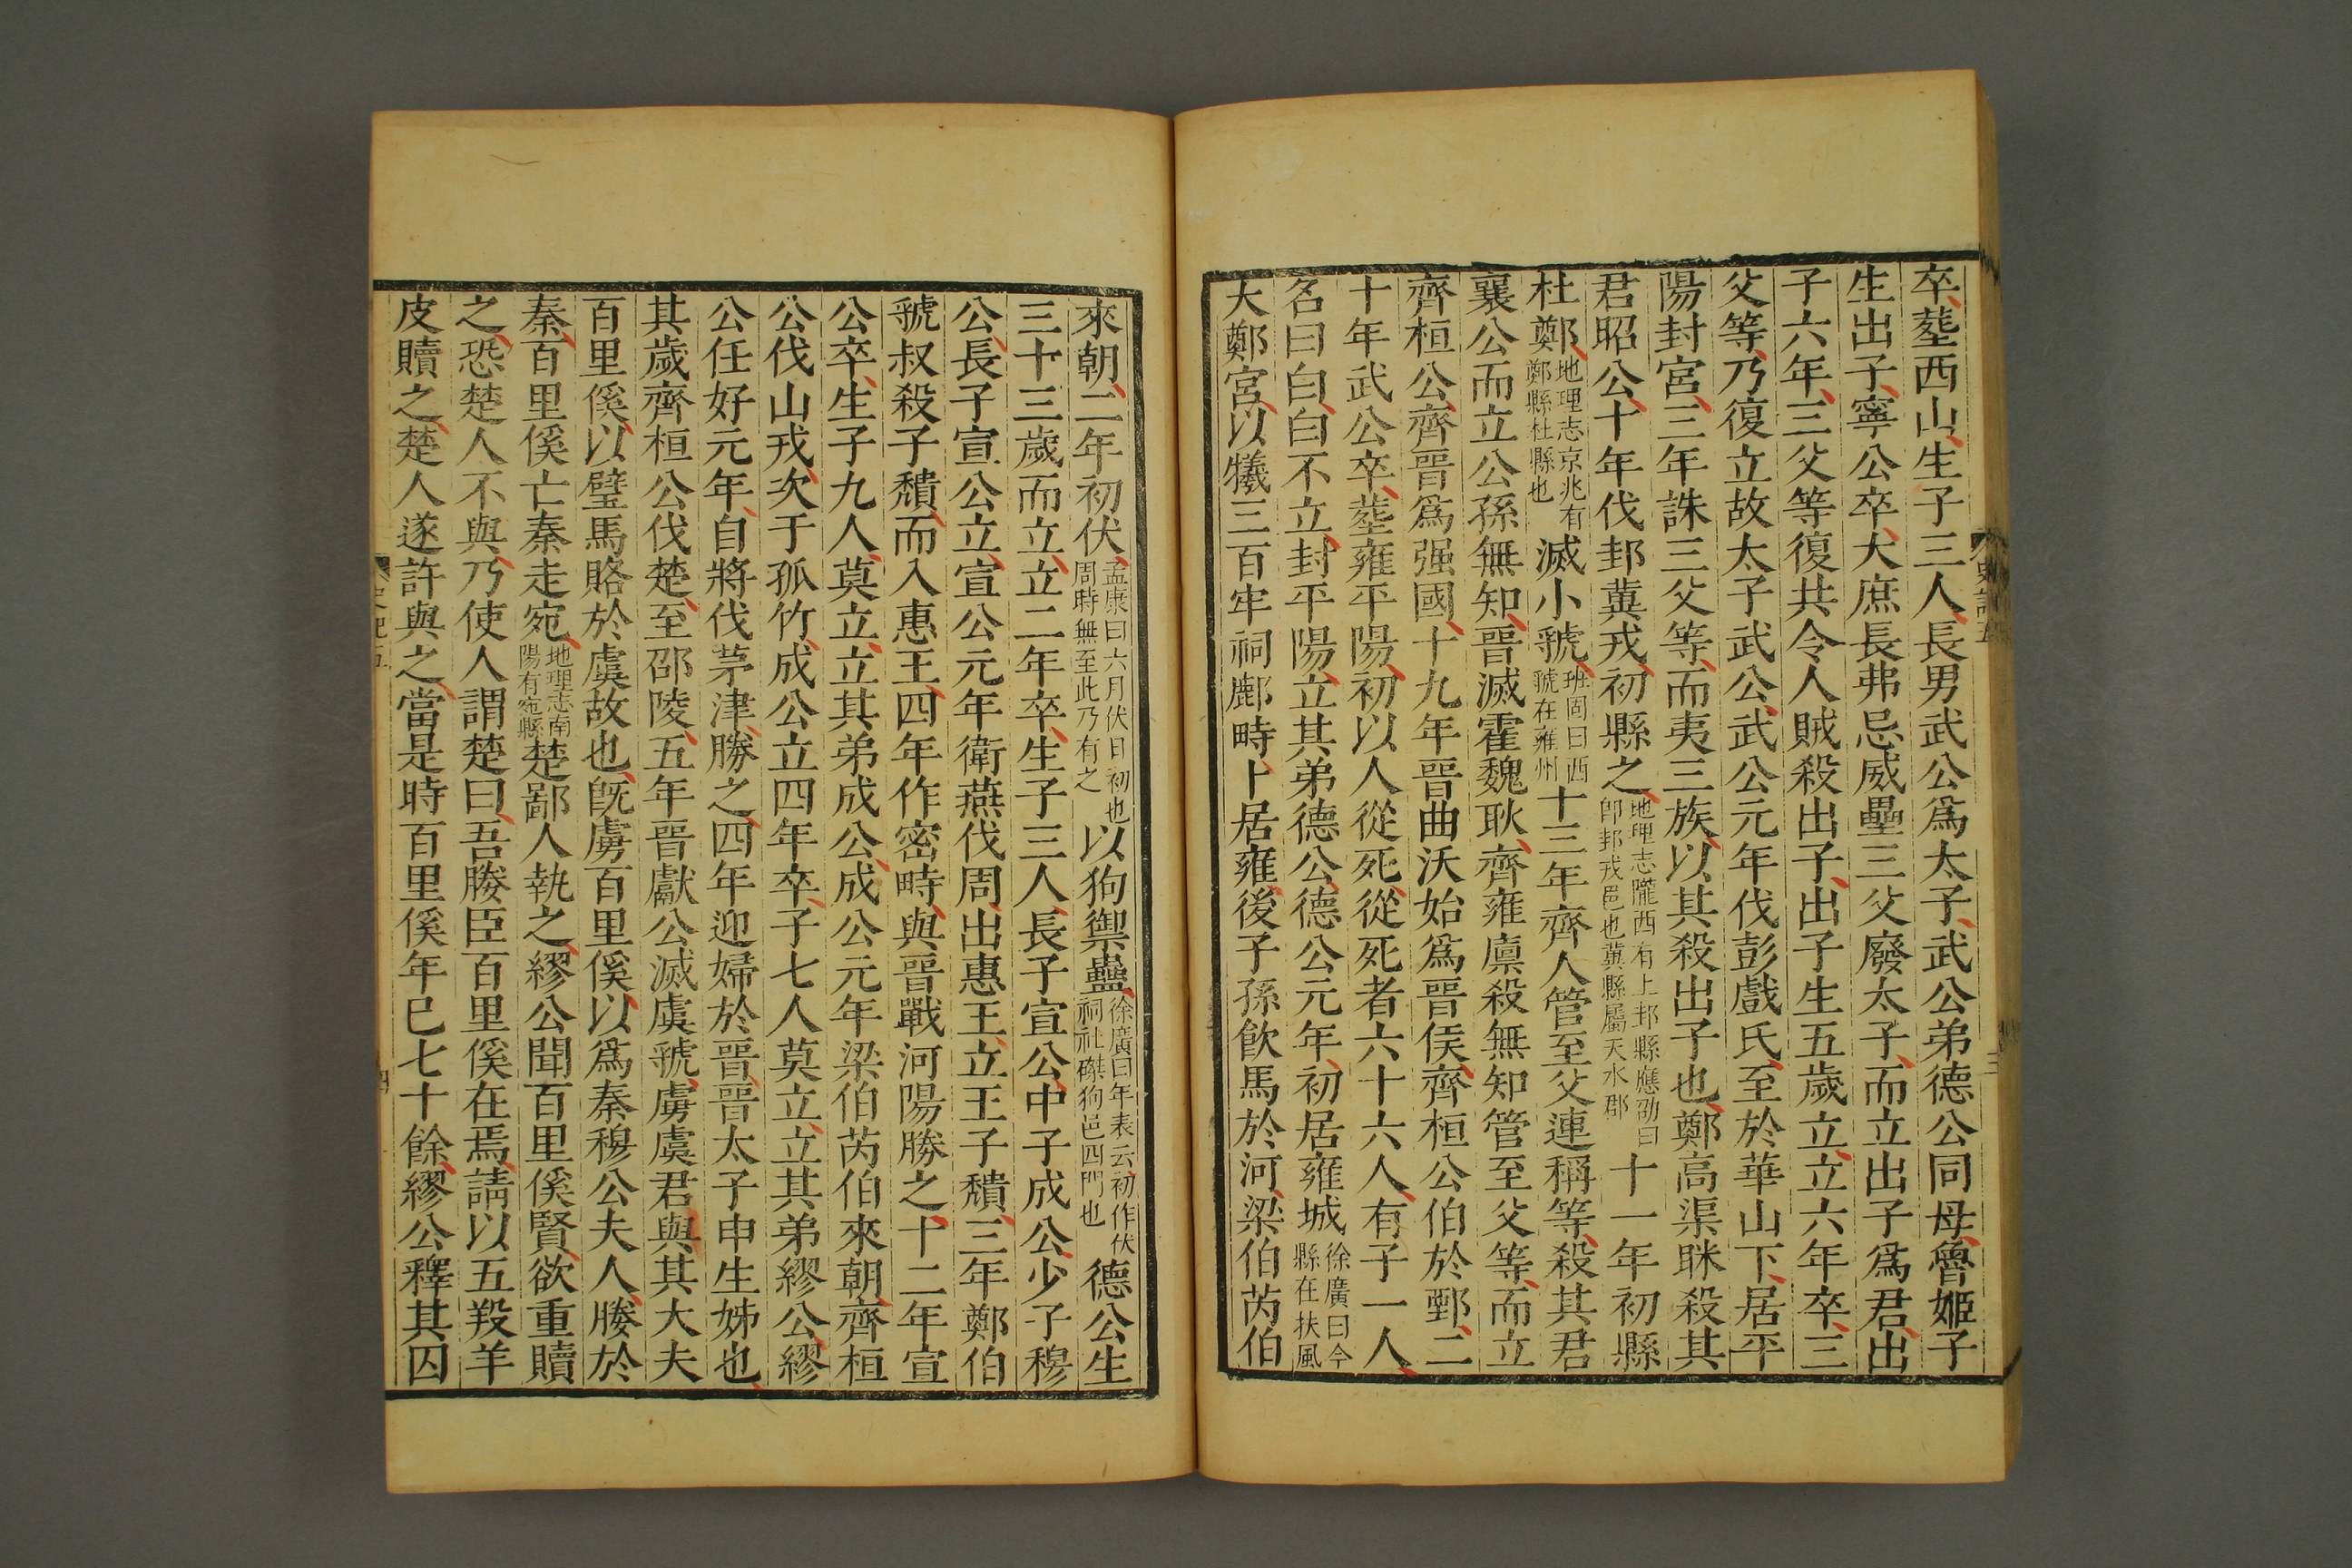 卒葬西山生子三人長男武公爲太子武公弟德公同母魯姬子
生出子寧公卒大庶長弗忌威壘三父廢太子而立出子爲君出
子六年三父等復共令人賊殺出子出子生五歲立立六年卒三
父等乃復立故太子武公武公元年伐彭戲氏至於華山下居平
陽封宮三年誅三父等而夷三族以其殺出子也鄭高渠眯殺其
君昭公十年伐邽冀戎初縣之地理志隴西有上邽縣應劭曰即邽戎邑也冀縣屬天水郡十一年初縣
杜鄭地理志京兆有鄭縣杜縣也滅小虢班固曰西虢在雍州十三年齊人管至父連稱等殺其君
襄公而立公孫無知晉滅霍魏耿齊雍廩殺無知管至父等而立
齊桓公齊晉爲强國十九年晉曲沃始爲晉侯齊桓公伯於鄄二
十年武公卒葬雍平陽初以人從死從死者六十六人有子一人
名曰白白不立封平陽立其弟德公德公元年初居雍城徐廣曰今縣在扶風
大鄭宮以犧三百牢祠鄜畤卜居雍後子孫飲馬於河梁伯芮伯
史記五
三
來朝二年初伏孟康曰六月伏日初也周時無至此乃有之以狗禦蠱徐廣曰年表云初作伏祠社磔狗邑四門也德公生
三十三歲而立立二年卒生子三人長子宣公中子成公少子穆
公長子宣公立宣公元年衛燕伐周出惠王立王子穨三年鄭伯
虢叔殺子穨而入惠王四年作密畤與晉戰河陽勝之十二年宣
公卒生子九人莫立立其弟成公成公元年梁伯芮伯來朝齊桓
公伐山戎次于孤竹成公立四年卒子七人莫立立其弟繆公繆
公任好元年自將伐茅津勝之四年迎婦於晉晉太子申生姊也
其歲齊桓公伐楚至邵陵五年晉獻公滅虞虢虜虞君與其大夫
百里傒以璧馬賂於虞故也既虜百里傒以爲秦穆公夫人媵於
秦百里傒亡秦走宛地理志南陽有宛縣楚鄙人執之繆公聞百里傒賢欲重贖
之恐楚人不與乃使人謂楚曰吾媵臣百里傒在焉請以五羖羊
皮贖之楚人遂許與之當是時百里傒年已七十餘繆公釋其囚
史記五
四